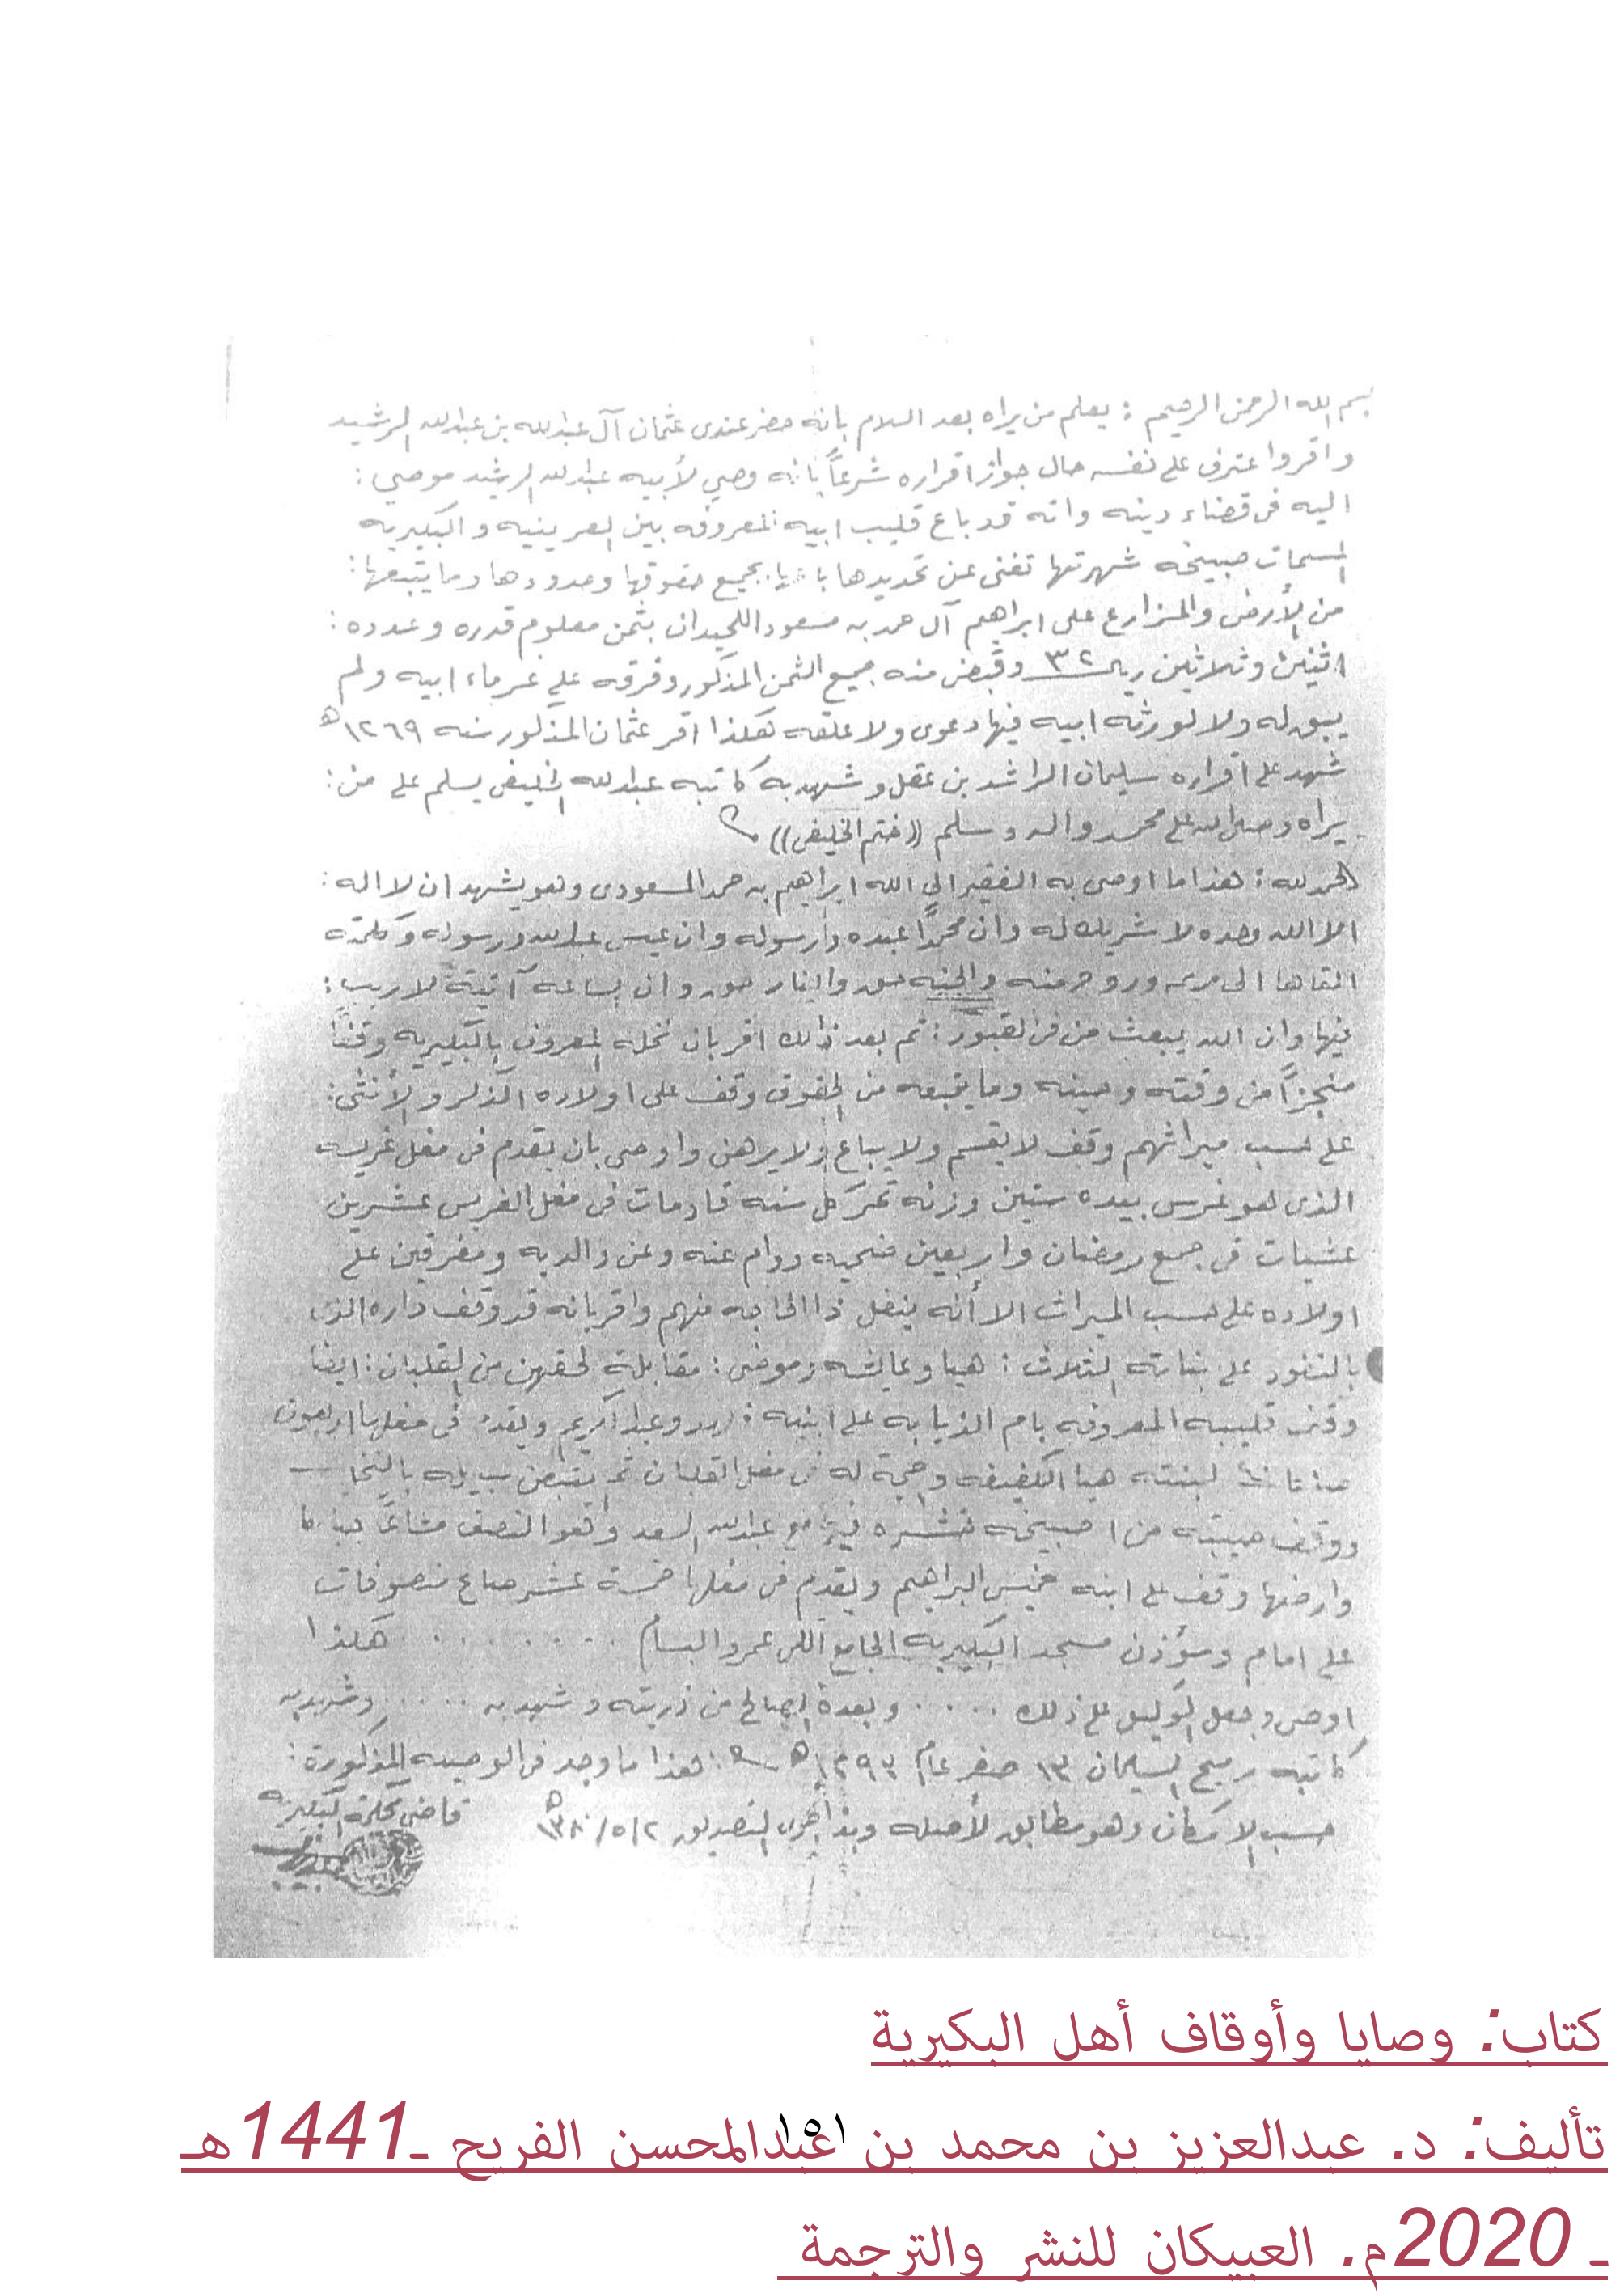 بسم الله الرحمن الرحيم : يعلم من يراه بعد السلام بانه حضر عندي عثمان آل عبدالله بن عبدالله الرشيد
واقر واعترف على نفسه حال جواز اقراره شرعاً بانه وصي لأبيه عبدالله الرشيد موصي :
اليه في قضاء دينه وانه قد باع قليب ابيه المعروفه بين العرينيه والبكيريه
المسمات صبيخه شهرتها تغني عن تحديدها بانها بجميع حقوقها وحدودها وما يتبعها :
من الأرض والمزارع على ابراهيم آل حمد به مسعود اللحيدان بثمن معلوم قدره وعدده :
اثنين وثلاثين ريال ٣٢ وقبض منه جميع الثمن المذكور وفرقه على غرماء ابيه ولم
يبق له ولا لورثه ابيه فيها دعوى ولا علقه هكذا اقر عثمان المذكور سنه ١٢٦٩هـ
شهد على اقراره سليمان الراشد بن عقل وشهد به كاتبه عبدالله الخليفي يسلم على من :
يراه وصلى الله على محمد واله وسلم ((ختم الخليفي))
الحمدلله : هذا ما اوصى به الفقير الى الله ابراهيم به حمد المسعودي وهو يشهد ان لا اله :
الا الله وحده لا شريك له وان محمدًا عبده ورسوله وان عيسى عبدالله ورسوله وكلمته
القاها الى مريم وروح منه والجنه حق والنار حق وان الساعه آتية لا ريب :
فيها وان الله يبعث من في القبور : ثم بعد ذالك اقر بان نخله المعروف بالبكيريه وقفًا
منجزاً من وقته وحينه وما يتبعه من الحقوق وقف على اولاده الذكر والأنثى :
على حسب ميراثهم وقف لا يقسم ولا يباع ولا يرهن واوصى بان يقدم في مغل غريسه
الذي هو غرس بيده ستين وزنة تمر كل سنه قادمات في مغل الغريس عشرين
عشيات في جمع رمضان واربعين ضحيه دوام عنه وعن والديه ومفرقين على
اولاده على حسب الميراث الا أنه ينفل ذا الحاجه منهم واقر بانه قد وقف داره الذي
بالنقود على بناته الثلاث : هيا وعايشه وموضي : مقابلة لحقهن من القلبان : ايضا
وقف قليبه المعروفه بام الذيابه على ابنيه : وعبدالكريم ويقدم في مغلها اربعون
لبنته هيا الكفيفه وحجة له في مغل القلبان ثم
ووقف صيبته من صبيخه مع عبدالله السعد وهو النصف مشاعًا
وارضها وقف على ابنه خميس البراهيم ويقدم في مغلها خمسة عشر صاع منصوفات
على امام ومؤذن مسجد البكيريه الجامع اللي عمروا البسام . . . . . . . . هكذا
اوصى وجعل الوكيل على ذلك . . . . وبعدهُ الصالح من ذريته وشهد به . . . . . وشهد به
كاتبه رميح السليمان ١٣ صفر عام ١٢٩٣هـ : هذا ما وجد في الوصيه المذكورة :
حسب الامكان وهو مطابق لأصله وبذا جرى التصديق ١٣٨٠/٥/٢هـ
قاضي محكمة البكيريه
كتاب: وصايا وأوقاف أهل البكيرية
تأليف: د. عبدالعزيز بن محمد بن عبدالمحسن الفريح ـ1441هـ
١٥١
ـ 2020م. العبيكان للنشر والترجمة